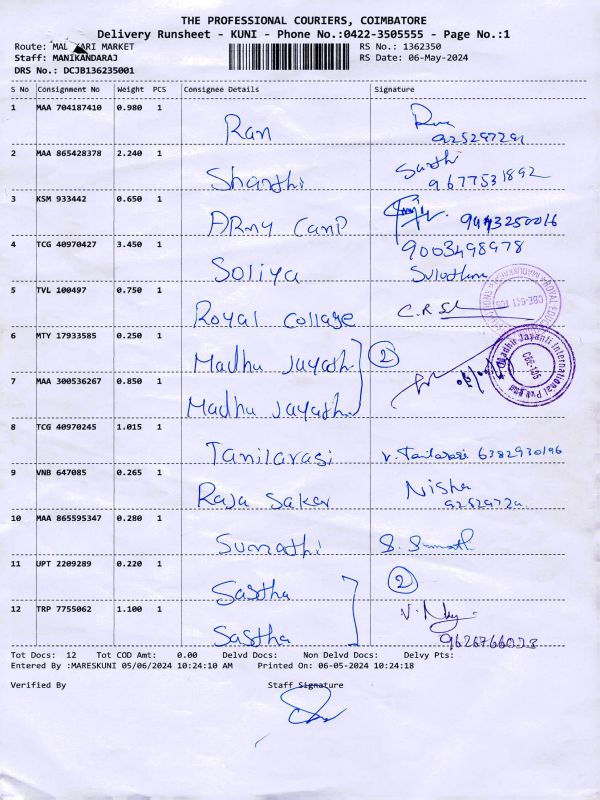 THE PROFESSIONAL COURIERS, COIMBATORE
Delivery Runsheet - KUNI - Phone No.:0422-3505555 - Page No.:1
Route: MAL KARI MARKET RS No.: 1362350
Staff: MANIKANDARAJ RS Date: 06-May-2024
DRS No.: DCJB136235001
S No Consignment No Weight PCS Consignee Details Signature
1 MAA 704187410 0.980 1 Ran
2 MAA 865428378 2.240 1 Shanthi 9677531892
3 KSM 933442 0.650 1 ARMY Camp 9443250016
4 TCG 40970427 3.450 1 Soliya 9003498978
5 TVL 100497 0.750 1 Royal College
6 MTY 17933585 0.250 1 Madhu Jayath 2
7 MAA 300536267 0.850 1 Madhu Jayath
8 TCG 40970245 1.015 1 Tanilarasi 6382930196
9 VNB 647085 0.265 1 Raja Sakar Nisha
10 MAA 865595347 0.280 1 Sumathi S. Sumath
11 UPT 2209289 0.220 1 Sastha 2
12 TRP 7755062 1.100 1 Sastha
Tot Docs: 12 Tot COD Amt: 0.00 Delvd Docs: Non Delvd Docs: Delvy Pts:
Entered By :MARESKUNI 05/06/2024 10:24:10 AM Printed On: 06-05-2024 10:24:18
Verified By Staff Signature